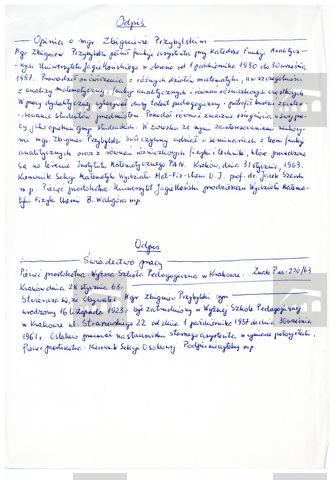 Odpis
Opinia o mgr. Zbigniewie Przybylskim
Mgr Zbigniew Przybylski pełnił funkcję asystenta przy Katedrze Funkcji Analitycz-
nych Uniwersytetu Jagiellońskiego w okresie od 1 października 1950 do 30 września
1957. Prowadził on ćwiczenia z różnych działów matematyki, a w szczególności
z analizy matematycznej, funkcji analitycznych i równań różniczkowych cząstkowych
W pracy dydaktycznej wykazał duży talent pedagogiczny i potrafił budzić zainte-
resowanie studentów przedmiotem. Posiadał również znaczne osiągnięcia w swej pra-
cy jako opiekun grup studenckich. W związku ze swymi zainteresowaniami nauko-
mi mgr. Zbigniew Przybylski brał czynny udział w seminariach z teorii funkcji
analitycznych oraz z równań różniczkowych fizyki i techniki, które prowadzone
są na terenie Instytutu Matematycznego PAN. Kraków, dnia 31 stycznia, 1963.
Kierownik Sekcji Matematyki Wydziału Mat-Fiz-Chem U.J. prof. dr Jacek Szarski
m.p. Pieczęć prostokątna: Uniwersytet Jagielloński prodziekan Wydziału Matema-
tyki Fizyki Chemii B. Waligóra mp.
Odpis
Świadectwo pracy
Pieczęć prostokątna - Wyższa Szkoła Pedagogiczna w Krakowie. Znak Pers-270/63
Kraków dnia 28 stycznia 63.
Stwierdza się, że Obywatel Mgr Zbigniew Przybylski syn
urodzony 16 listopada 1923 był zatrudniony w Wyższej Szkole Pedagogicznej
w Krakowie ul. Straszewskiego 22 od dnia 1 października 1957 do dnia 30 września
1961 r. Ostatnio pracował na stanowisku starszego asystenta w wymiarze pełnoetatowym.
Pieczęć prostokątna: Kierownik Sekcji Osobowej Podpis nieczytelny mp.